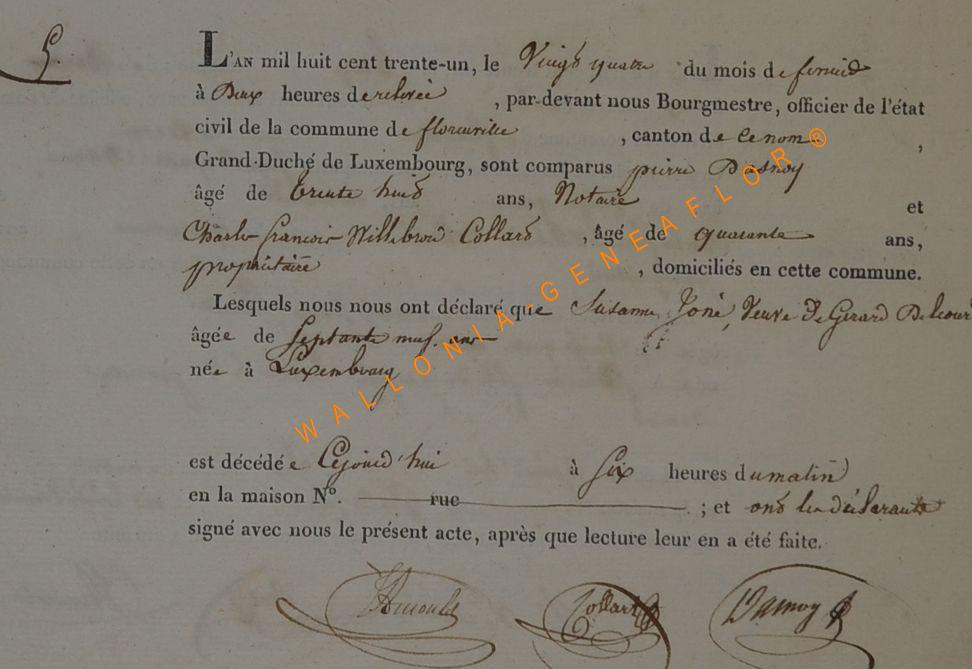 5.
L'AN mil huit cent trente-un, le Vingt quatre du mois de fevrier
à Deux heures de relevée , par-devant nous Bourgmestre, officier de l'état
civil de la commune de florenville , canton de ce nom ,
Grand-Duché de Luxembourg, sont comparus pierre Dasnoy
âgé de trente huit ans, Notaire et
Charle françois Willebrod Collard , âgé de quarante ans,
propriétaire , domiciliés en cette commune.
Lesquels nous nous ont déclaré que Susanne Joné, Veuve de Gerard Delcour
âgée de septante neuf. ans
née à Luxembourg
est décédée Cejourd'hui à Six heures du matin
en la maison N°. rue . ; et ont les déclarants
signé avec nous le présent acte, après que lecture leur en a été faite.
Collard Dasnoy
WALLONIA-GENEAFLOR®